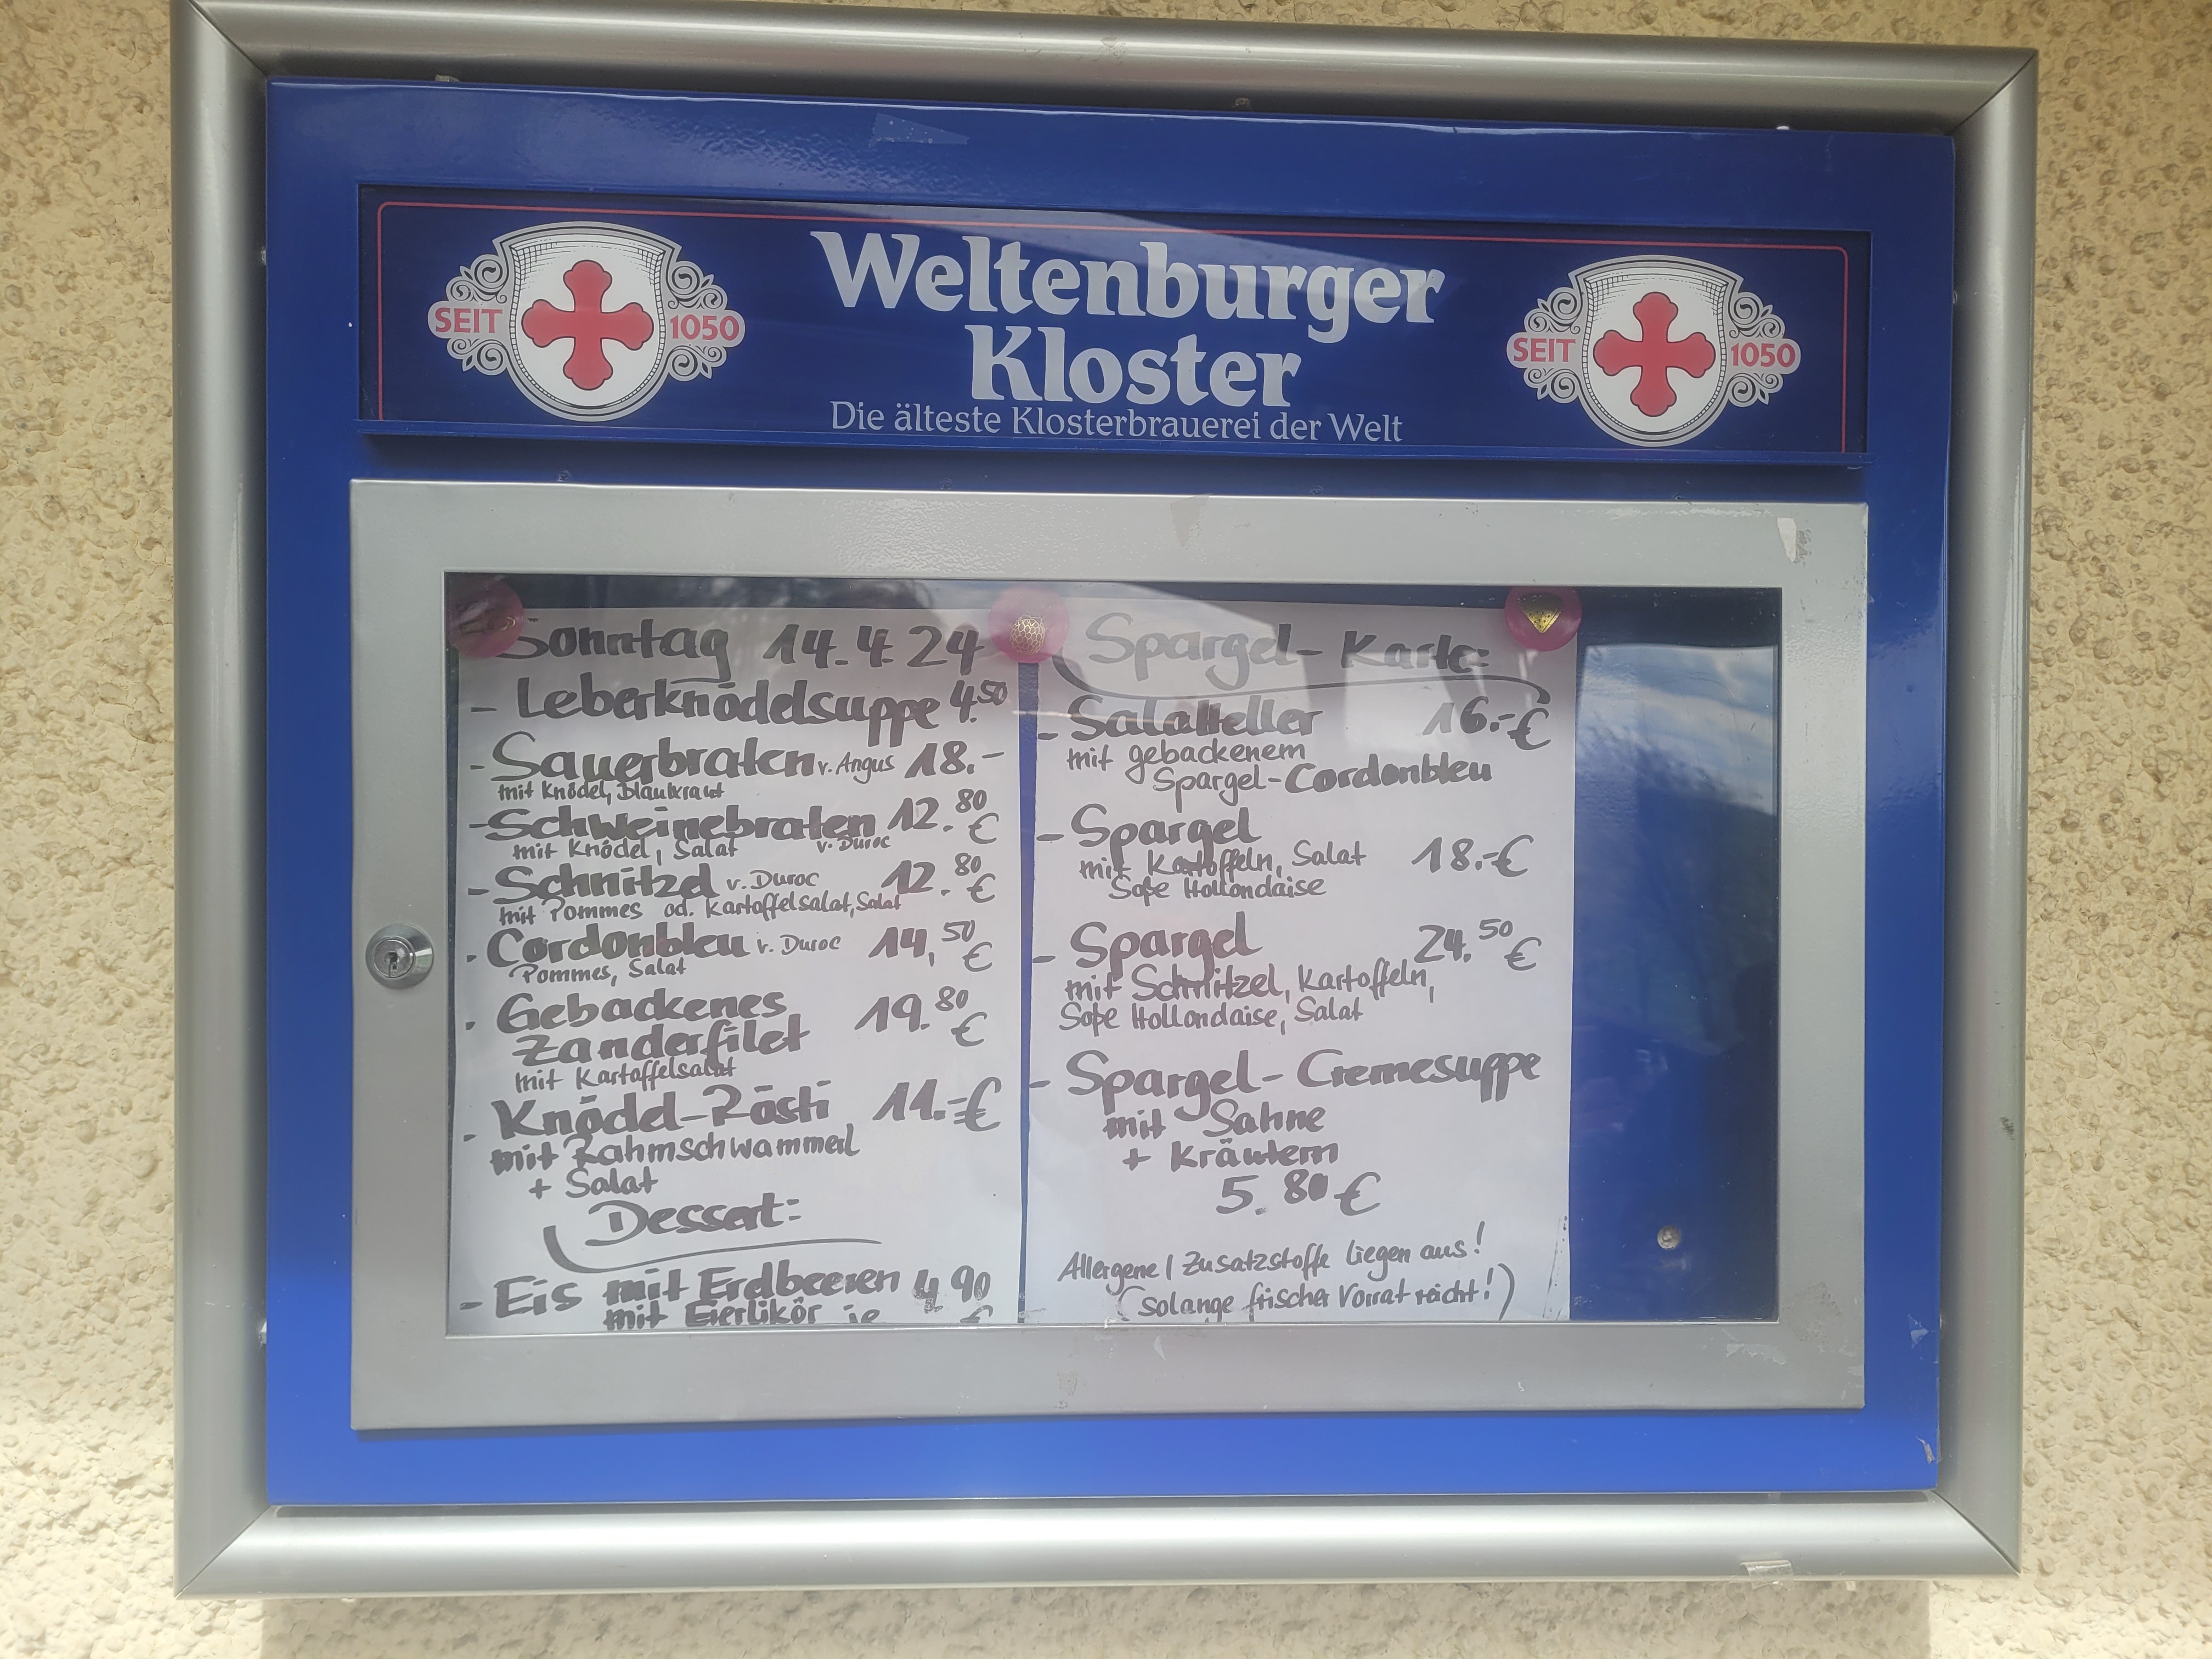 SEIT 1050
Weltenburger
Kloster
Die älteste Klosterbrauerei der Welt
SEIT 1050
Sonntag 14.4.24
- Leberknödelsuppe 4.50
- Sauerbraten v. Angus 18.-
mit Knödel, Blaukraut
- Schweinebraten 12.80 €
mit Knödel, Salat v. Duroc
- Schnitzel v. Duroc 12.80 €
mit Pommes od. Kartoffelsalat, Salat
. Cordonbleu v. Duroc 14,50 €
Pommes, Salat
. Gebackenes
Zanderfilet 19.80 €
mit Kartoffelsalat
. Knödel-Rösti 11.-€
mit Rahmschwammerl
+ Salat
Dessert:
- Eis mit Erdbeeren 4 90
mit Eierlikör je €
Spargel-Karte:
- Salatteller 16.-€
mit gebackenem
Spargel-Cordonbleu
- Spargel
mit Kartoffeln, Salat 18.-€
Soße Hollondaise
- Spargel 24.50 €
mit Schnitzel, Kartoffeln,
Soße Hollondaise, Salat
- Spargel-Cremesuppe
mit Sahne
+ Kräutern
5.80 €
Allergene / Zusatzstoffe liegen aus!
(solange frischer Vorrat reicht!)